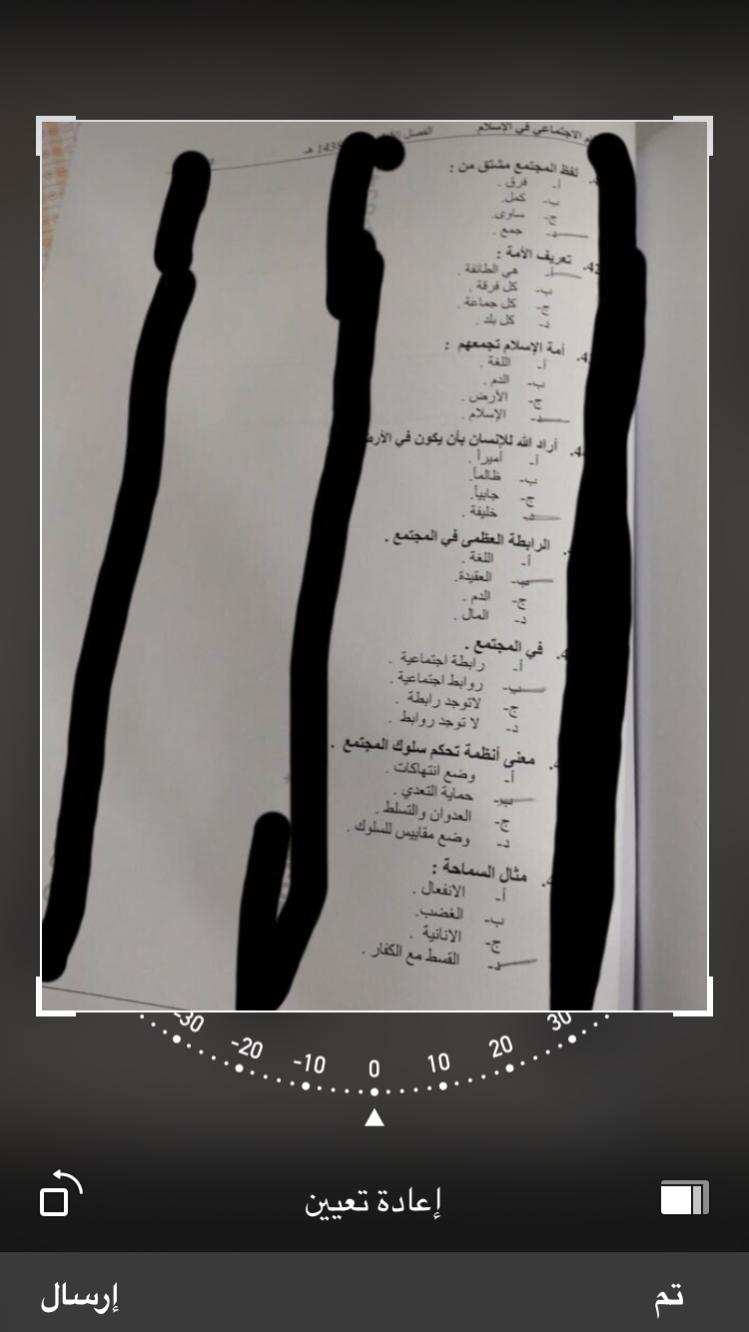 الاجتماعي في الإسلام
الفصل
1435 هـ
لفظ المجتمع مشتق من :
أ- فرق .
ب- كمل.
ج- ساوى.
د- جمع .
تعريف الأمة :
أ- هي الطائفة .
ب- كل فرقة .
ج- كل جماعة .
د- كل بلد .
أمة الإسلام تجمعهم :
أ- اللغة .
ب- الدم .
ج- الأرض .
د- الإسلام .
أراد الله للإنسان بأن يكون في الأرض
أ- أميراً .
ب- ظالماً.
ج- جابياً.
د- خليفة .
الرابطة العظمى في المجتمع .
أ- اللغة .
ب- العقيدة.
ج- الدم .
د- المال .
في المجتمع .
أ- رابطة اجتماعية .
ب- روابط اجتماعية .
ج- لاتوجد رابطة .
د- لا توجد روابط .
معنى أنظمة تحكم سلوك المجتمع .
أ- وضع انتهاكات .
ب- حماية التعدي .
ج- العدوان والتسلط .
د- وضع مقاييس للسلوك .
مثال السماحة :
أ- الانفعال .
ب- الغضب.
ج- الانانية .
د- القسط مع الكفار .
-30 -20 -10 0 10 20 30
إعادة تعيين
تم
إرسال